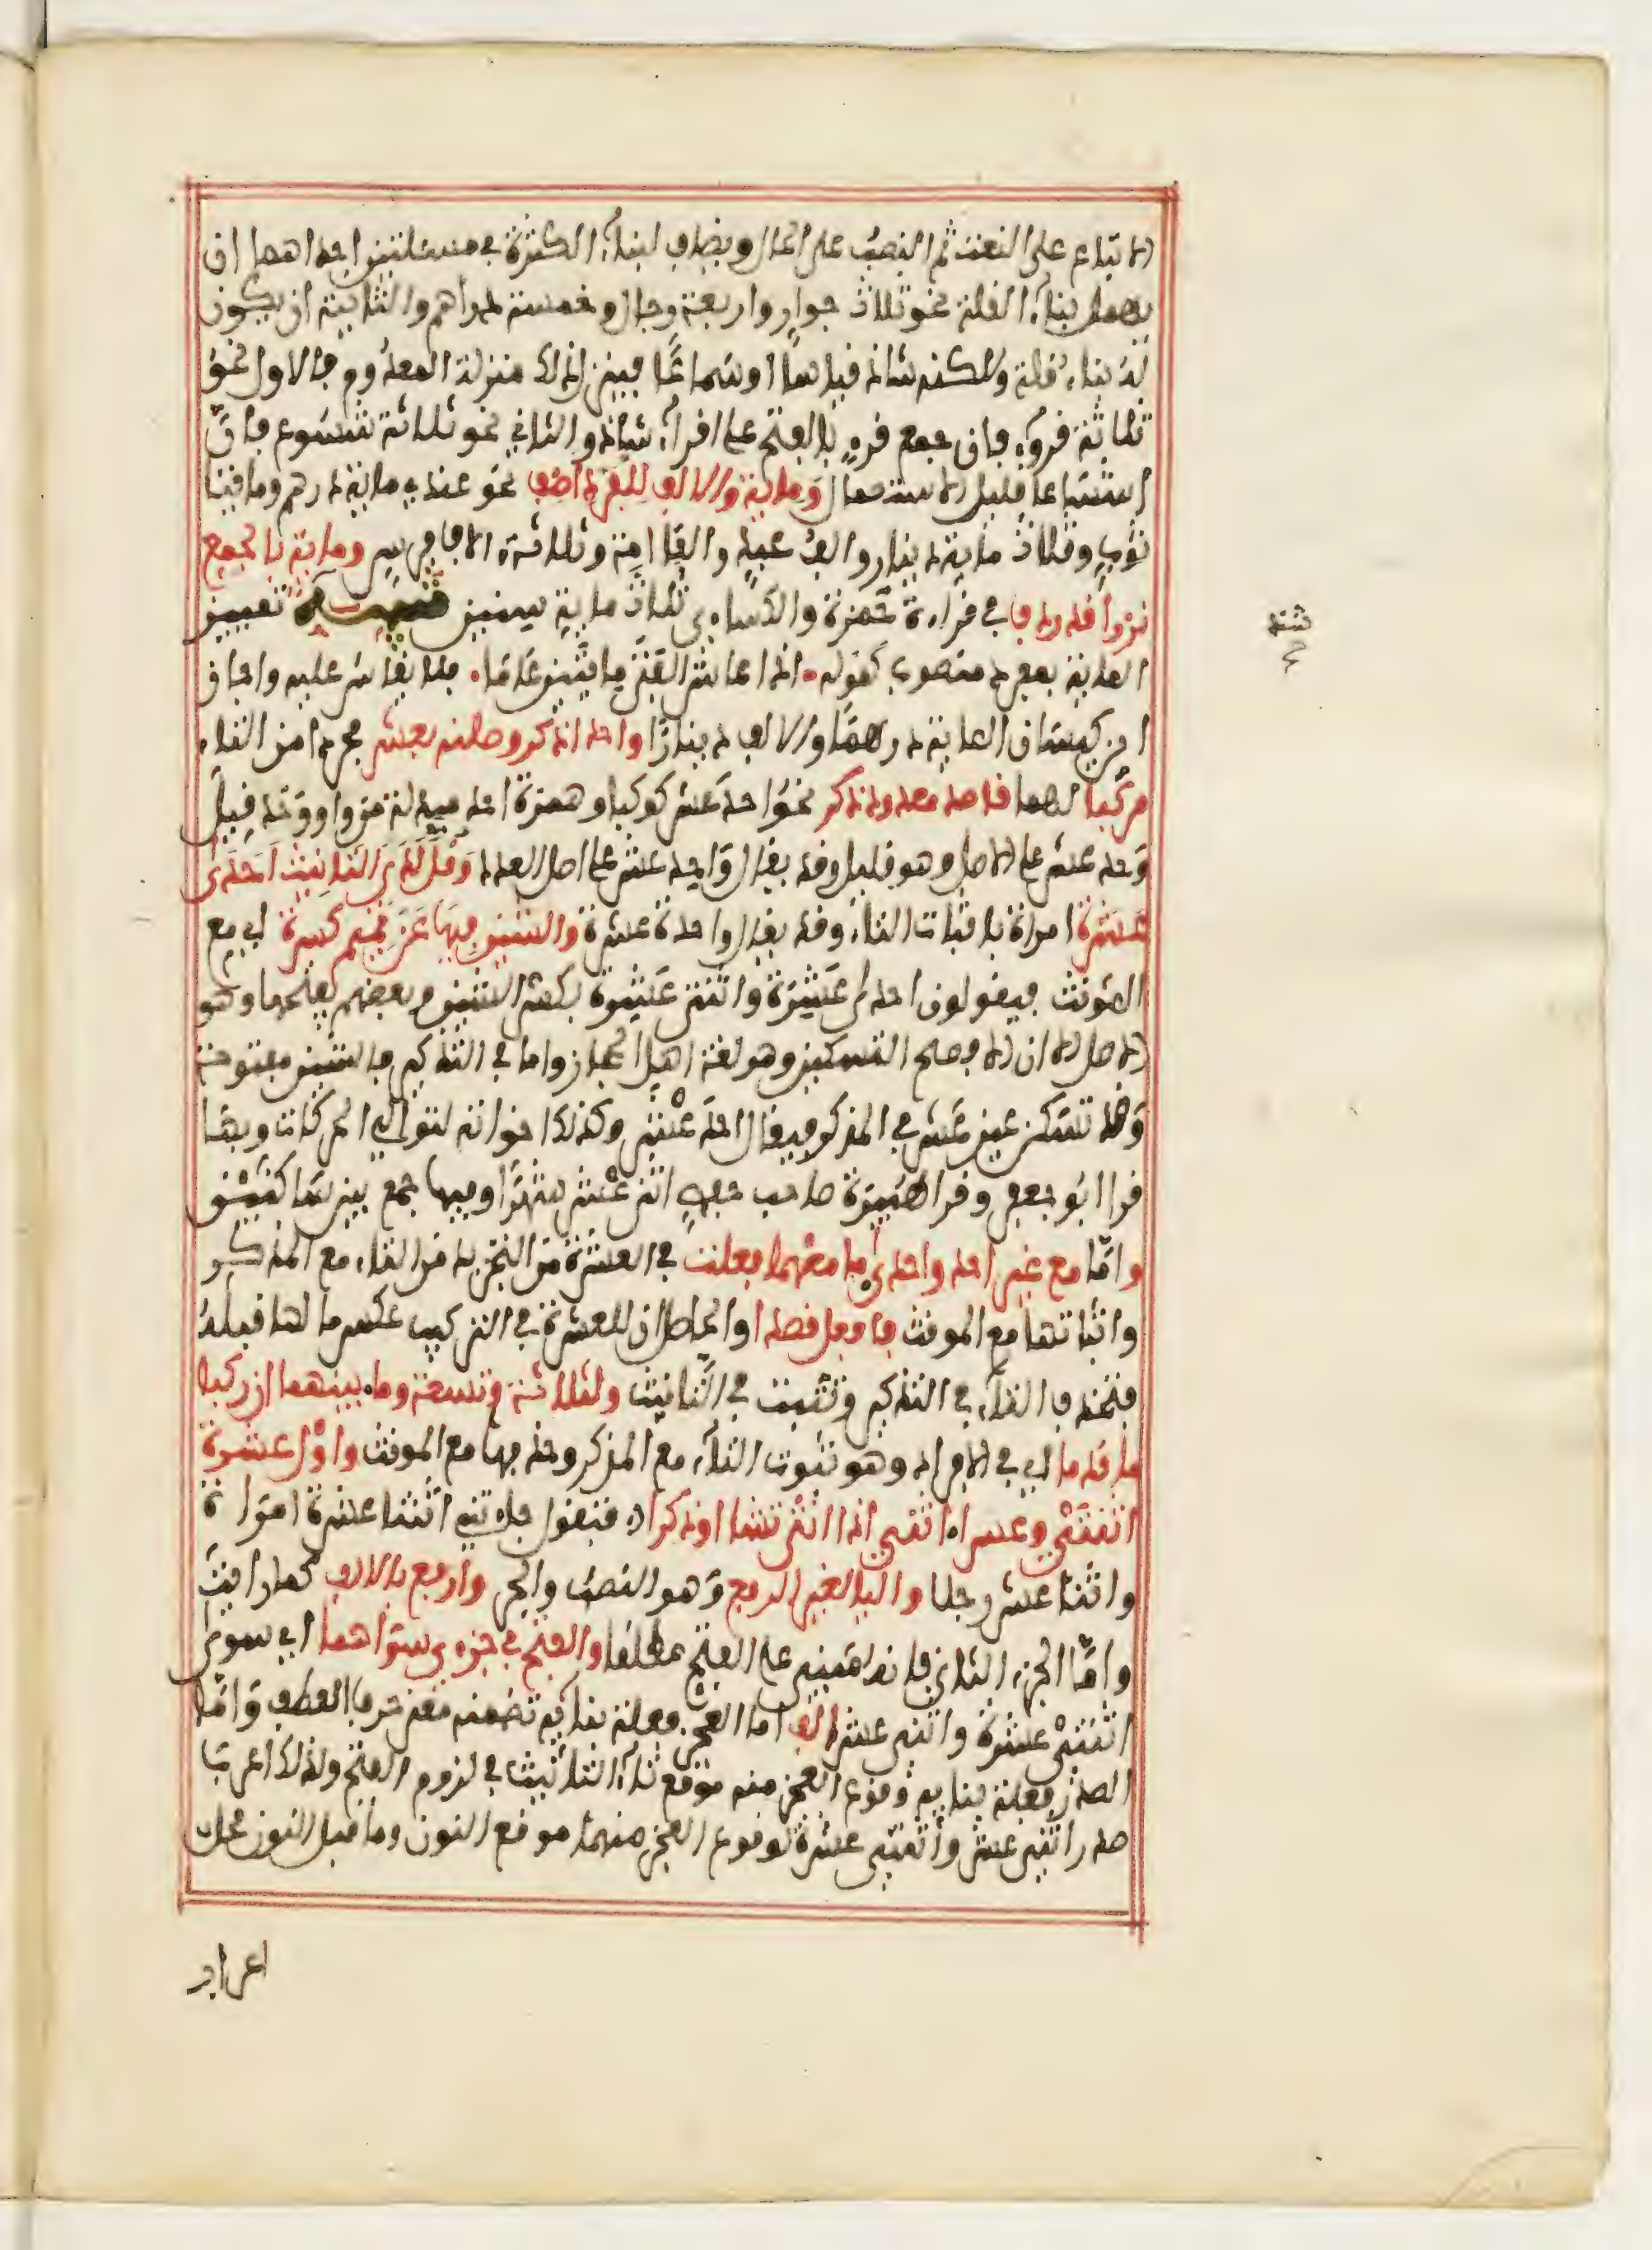 الاتباع على النعت ثم النصب على الحال ويضاف لبناء الكثرة في مسئلتين احداهما ان
يهمل بناء القلة نحو ثلاث جوار واربعة رجال وخمسة دراهم والثانية ان يكون
له بناء قلة ولكنه شاذ قياسا او سماعا فينزل لذلك منزلة المعدوم فالاول نحو
ثلاثة قروء فان جمع قرء بالفتح على اقراء شاذ والثاني نحو ثلاثة شسوع فان
اشساعا قليل الاستعمال ومائة والالف للفرد اضف نحو عندي مائة درهم ومائتا
ثوب وثلاث مائة دينار والف عبد والفا امة وثلاثة الاف فرس ومائة بالجمع
نزرا قد ردف في قراءة حمزة والكساءي ثلاث مائة سنين تنبيه شذ تمييز
المائة بمفرد منصوب كقوله اذا عاش الفتى مائتين عاما فلا يقاس عليه واجاز
ابن كيسان المائة درهما والالف دينارا واحد اذكر وصلنه بعشر مجردا من التاء
مركبا لهما قاصد معدود ذكر نحو احد عشر كوكبا وهمزة احد مبدلة من واو وقد قيل
وحد عشر على الاصل وهو قليل وقد يقال واحد عشر على اصل العدد وقل لدى التانيث احدى
عشرة امراة باثبات التاء وقد يقال واحدة عشرة والشين فيها عن تميم كسرة اي مع
المونث فيقولون احدى عشرة واثنتا عشرة بكسر الشين وبعضهم يفتحها وهو
الاصل الا ان الافصح التسكين وهو لغة اهل الحجاز واما في التذكير فالشين مفتوحة
وقد تسكن عين عشر في المذكر فيقال احد عشر وكذلك اخواته لتوالي الحركات وبها
قرا ابو جعفر وقرا هبيرة صاحب حفص اثنا عشر شهرا وفيها جمع بين ساكنين
واما مع غير احد واحدى ما معهما فعلت في العشرة من التجريد من التاء مع المذكر
واثباتها مع المونث فافعل قصدا والحاصل ان للعشرة في التركيب عكس ما لها قبله
فتحذف التاء في التذكير وتثبت في التانيث ولثلاثة وتسعة وما بينهما ان ركبا
ما قدما اي في الافراد وهو ثبوت التاء مع المذكر وحذفها مع المونث واول عشرة
اثنتي وعشرا اثني اذا انثى تشا او ذكرا فتقول جاءتني اثنتا عشرة امراة
واثنا عشر رجلا واليا لغير الرفع وهو النصب والجر وارفع بالالف كما رايت
واما الجزء الثاني فانه مبني على الفتح مطلقا والفتح في جزءي سواهما الف اي سوى
اثنتي عشرة واثني عشر اما العجز فعلة بنائه تضمنه معنى حرف العطف واما
الصدر فعلة بنائه وقوع العجز منه موقع تاء التانيث في لزوم الفتح ولذلك اعرب
صدر اثني عشر واثنتي عشرة لوقوع العجز منهما موقع النون وما قبل النون محل
اعراب
شذ